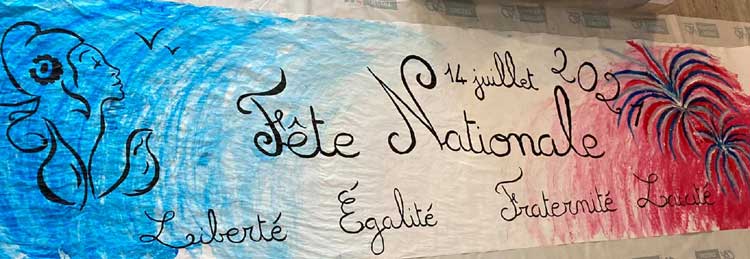 14 juillet 2021
Fête Nationale
Liberté Égalité Fraternité Laïcité